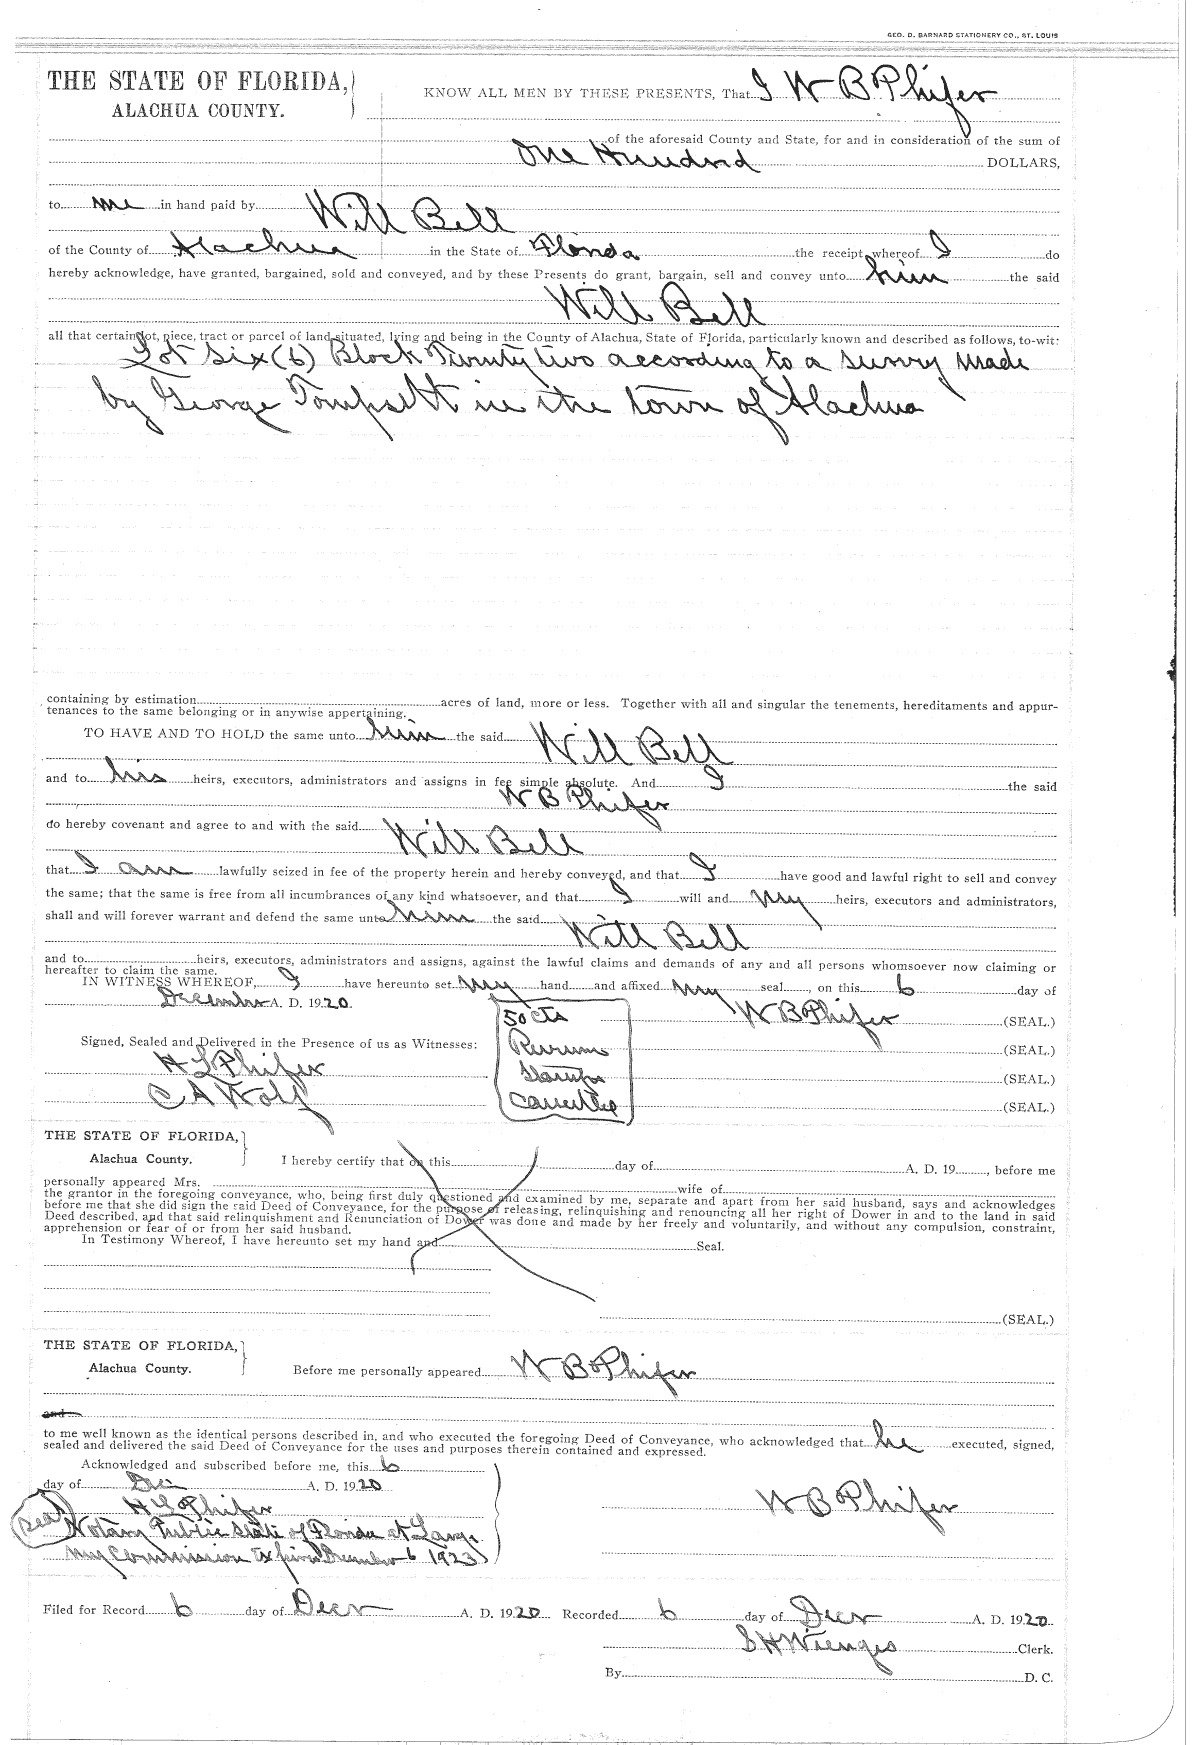 GEO. D. BARNARD STATIONERY CO., ST. LOUIS
THE STATE OF FLORIDA,
ALACHUA COUNTY.
KNOW ALL MEN BY THESE PRESENTS, That I W B Phifer
of the aforesaid County and State, for and in consideration of the sum of
One Hundred DOLLARS,
to me in hand paid by Will Bell
of the County of Alachua in the State of Florida the receipt whereof I do
hereby acknowledge, have granted, bargained, sold and conveyed, and by these Presents do grant, bargain, sell and convey unto him the said
Will Bell
all that certain lot, piece, tract or parcel of land situated, lying and being in the County of Alachua, State of Florida, particularly known and described as follows, to-wit:
Lot Six (6) Block Twenty two according to a survey made
by George Tompsett in the town of Alachua
containing by estimation acres of land, more or less. Together with all and singular the tenements, hereditaments and appur-
tenances to the same belonging or in anywise appertaining.
TO HAVE AND TO HOLD the same unto him the said Will Bell
and to his heirs, executors, administrators and assigns in fee simple absolute. And I the said
W B Phifer
do hereby covenant and agree to and with the said Will Bell
that I am lawfully seized in fee of the property herein and hereby conveyed, and that I have good and lawful right to sell and convey
the same; that the same is free from all incumbrances of any kind whatsoever, and that I will and my heirs, executors and administrators,
shall and will forever warrant and defend the same unto him the said Will Bell
and to heirs, executors, administrators and assigns, against the lawful claims and demands of any and all persons whomsoever now claiming or
hereafter to claim the same.
IN WITNESS WHEREOF, I have hereunto set my hand and affixed my seal, on this 6 day of
December A. D. 1920.
W B Phifer (SEAL.)
50 cts
Revenue
Stamps
Cancelled
Signed, Sealed and Delivered in the Presence of us as Witnesses:
(SEAL.)
H L Phifer
(SEAL.)
C A Wolf
(SEAL.)
THE STATE OF FLORIDA,
Alachua County.
I hereby certify that on this day of A. D. 19 , before me
personally appeared Mrs. wife of
the grantor in the foregoing conveyance, who, being first duly questioned and examined by me, separate and apart from her said husband, says and acknowledges
before me that she did sign the said Deed of Conveyance, for the purpose of releasing, relinquishing and renouncing all her right of Dower in and to the land in said
Deed described, and that said relinquishment and Renunciation of Dower was done and made by her freely and voluntarily, and without any compulsion, constraint,
apprehension or fear of or from her said husband.
In Testimony Whereof, I have hereunto set my hand and Seal.
(SEAL.)
THE STATE OF FLORIDA,
Alachua County.
Before me personally appeared W B Phifer
and
to me well known as the identical persons described in, and who executed the foregoing Deed of Conveyance, who acknowledged that he executed, signed,
sealed and delivered the said Deed of Conveyance for the uses and purposes therein contained and expressed.
Acknowledged and subscribed before me, this 6
day of Dec A. D. 1920
W B Phifer
H L Phifer
Seal Notary Public State of Florida at Large
my Commission Expires December 6 1923
Filed for Record 6 day of Decr A. D. 1920 Recorded 6 day of Decr A. D. 1920
S H Wienges Clerk.
By D. C.